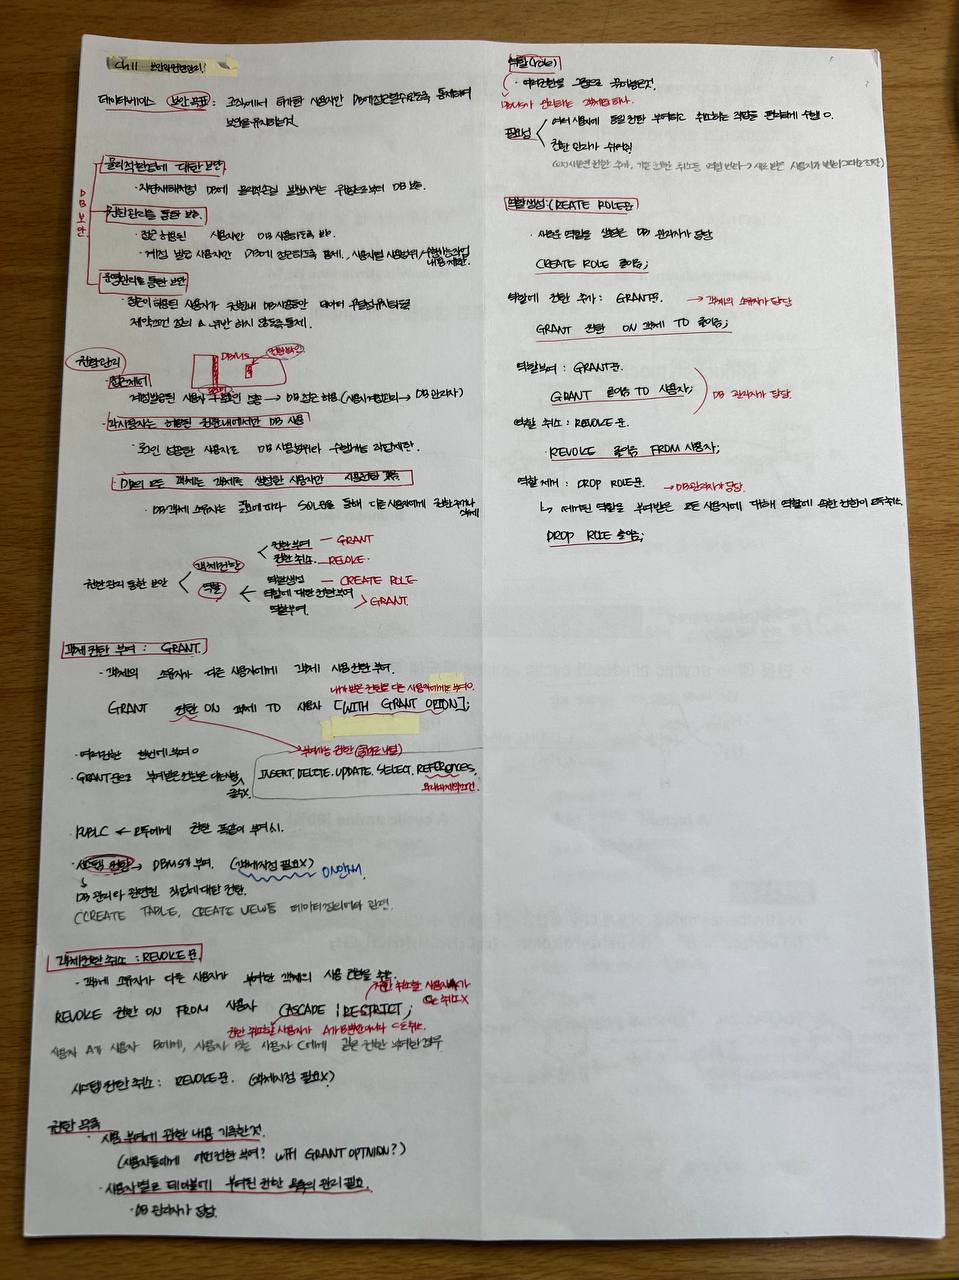 ch11 보안과 권한관리
데이터베이스 보안 목표 : 조직에서 허가한 사용자만 DB에 접근할 수 있도록 통제하여
보안을 유지하는것
DB 보안
물리적 환경에 대한 보안
· 자연재해처럼 DB에 물리적 손실 발생시키는 위험으로부터 DB 보호.
권한 관리를 통한 보안.
· 접근 허용된 사용자만 DB 사용하도록 보호.
· 계정 발급 사용자만 DB에 접근하도록 통제, 사용자별 사용범위/수행가능 작업
내용 제한.
운영관리를 통한 보안
· 접근이 허용된 사용자가 권한내 DB 사용동안 데이터 무결성 유지하도록
제약조건 정의 & 위반 하지 않도록 통제.
권한관리
DBMS
권한확인
· 접근제어
계정발급된 사용자 로그인 성공 → DB 접근 허용 (사용자 계정관리 → DB 관리자)
· 각 사용자는 허용된 권한내에서만 DB 사용
· 로그인 성공한 사용자도 DB 사용범위와 수행가능 작업제한.
· DB의 모든 객체는 객체를 생성한 사용자만 사용권한 가짐
· DB 객체 소유자는 필요에 따라 SQL문을 통해 다른 사용자에게 권한 부여/취소
권한 관리 통한 보안
객체권한
권한 부여 — GRANT
권한 취소 — REVOKE.
역할
역할생성 — CREATE ROLE
역할에 대한 권한부여
역할부여.
GRANT
객체 권한 부여 : GRANT.
· 객체의 소유자가 다른 사용자에게 객체 사용 권한 부여.
내가 받은 권한도 다른 사용자에게 부여 O.
GRANT 권한 ON 객체 TO 사용자 [WITH GRANT OPTION];
부여가능 권한
INSERT, DELETE, UPDATE, SELECT, REFERENCES,
외래키제약조건
· 여러권한 한번에 부여 O
· GRANT문으로 부여받은 권한은 다른사람
줄수X
· PUBLIC ← 모두에게 권한 똑같이 부여시.
· 시스템 권한 → DBMS가 부여. (객체지정 필요X) ON안써.
DB 관리와 관련된 작업에 대한 권한.
CCREATE TABLE, CREATE VIEW등 데이터정의어와 관련.
객체권한 취소 : REVOKE 문.
· 객체 소유자가 다른 사용자가 부여한 객체의 사용 권한을 취소.
권한 취소할 사용자가
취소X
REVOKE 권한 ON FROM 사용자 CASCADE | RESTRICT ;
사용자 A가 사용자 B에게, 사용자 B는 사용자 C에게 같은 권한 부여한 경우
시스템 권한 취소 : REVOKE문. (객체지정 필요X)
권한 목록
· 사용 부여에 관한 내용 기록한것.
(사용자들에게 어떤 권한 부여? WITH GRANT OPTNION?)
· 사용자별로 테이블에 부여된 권한 목록의 관리 필요.
· DB 관리자가 담당.
역할(role)
· 여러권한을 그룹으로 묶어놓은것.
DBMS가 관리하는 객체중 하나.
필요성
여러 사용자에 동일 권한 부여하고 취소하는 작업을 편리하게 수행 O.
권한 관리가 쉬워짐
역할생성 : CREATE ROLE문
· 새로운 역할을 생성은 DB 관리자가 담당
CREATE ROLE 롤이름;
역할에 권한 추가 : GRANT문. → 객체의 소유자가 담당
GRANT 권한 ON 객체 TO 롤이름;
역할부여 : GRANT문.
GRANT 롤이름 TO 사용자;
DB 관리자가 담당.
역할 취소 : REVOKE문.
REVOKE 롤이름 FROM 사용자;
역할 제거 : DROP ROLE문. → DB관리자가 담당.
↳ 제거된 역할을 부여받은 모든 사용자에 대해 역할에 속한 권한이 모두취소
DROP ROLE 롤이름;